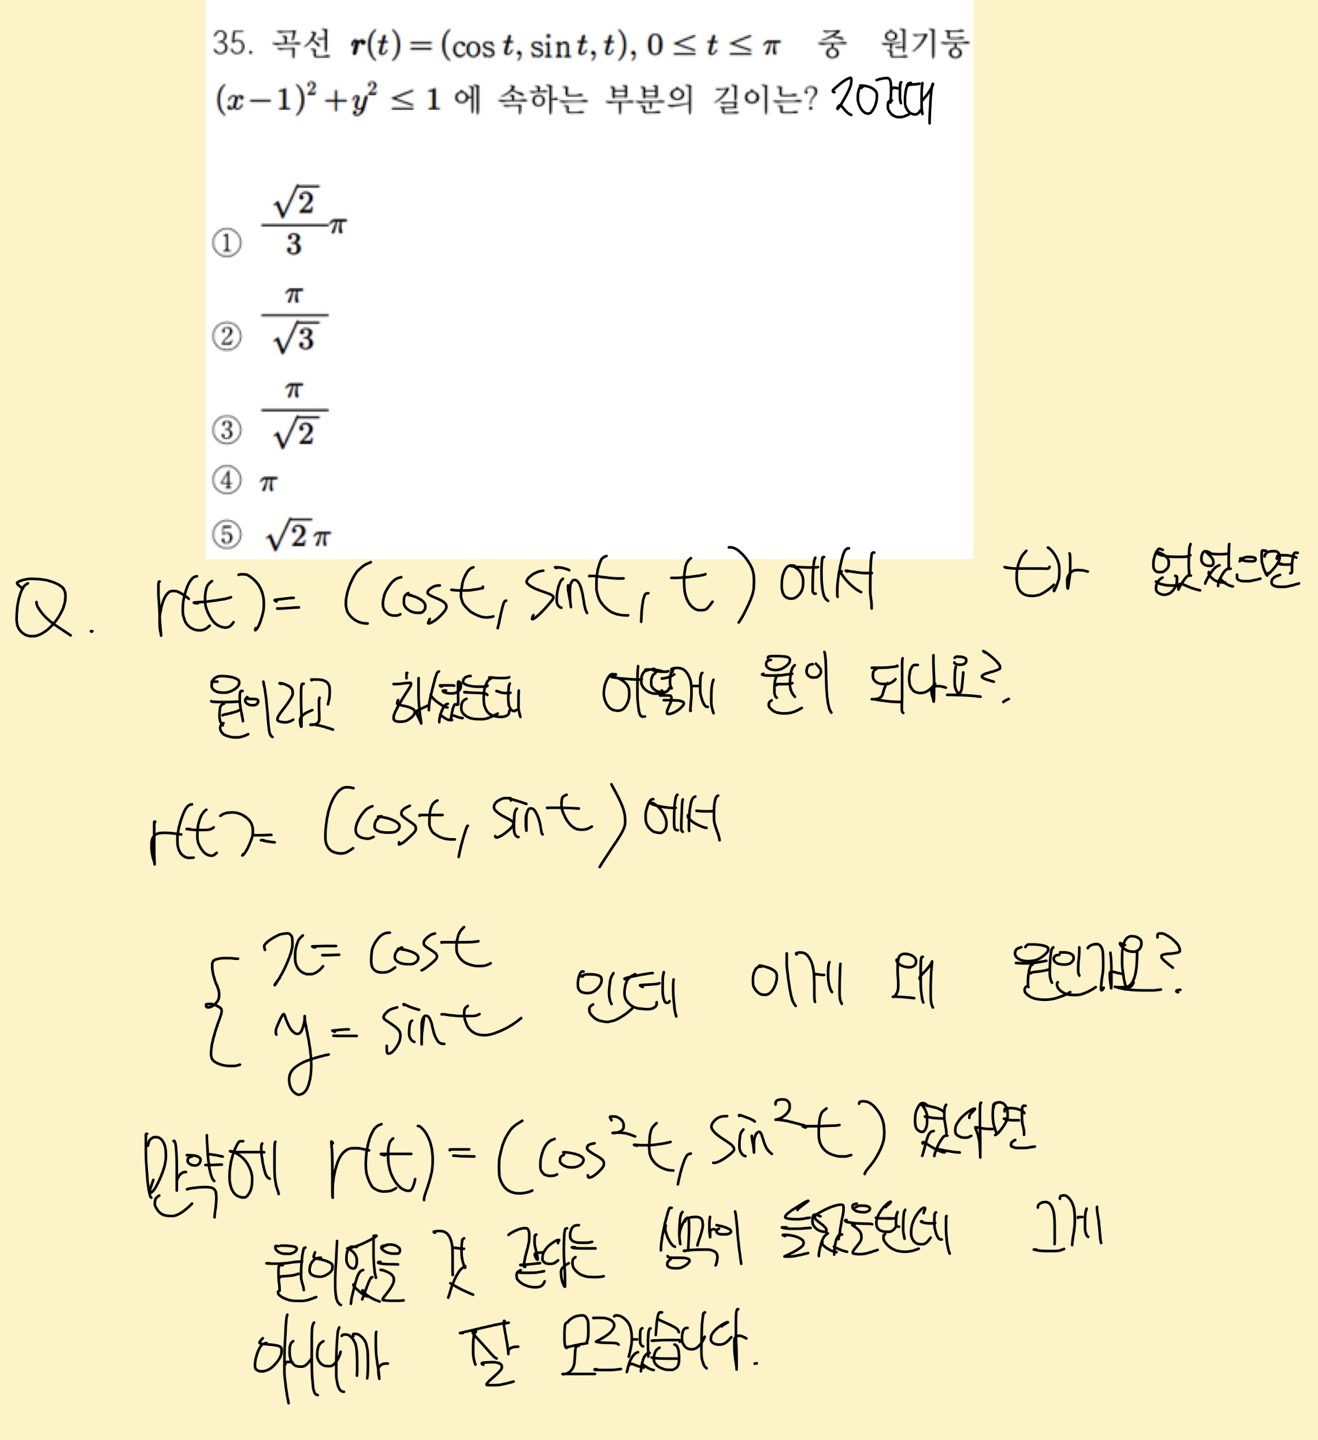 35. 곡선 r(t)=(cos t, sin t, t), 0≤t≤π 중 원기둥
(x-1)²+y² ≤1 에 속하는 부분의 길이는? 20건대
① √2/3 π
② π/√3
③ π/√2
④ π
⑤ √2π
Q. r(t)= (cost, sint, t)에서 t가 없었으면
원이라고 하셨는데 어떻게 원이 되나요?
r(t)= (cost, sint)에서
{ x= cost
y= sint 인데 이게 왜 원인가요?
만약에 r(t)=(cos²t, sin²t) 였다면
원이었을 것 같다는 생각이 들었을텐데 그게
아니니까 잘 모르겠습니다.